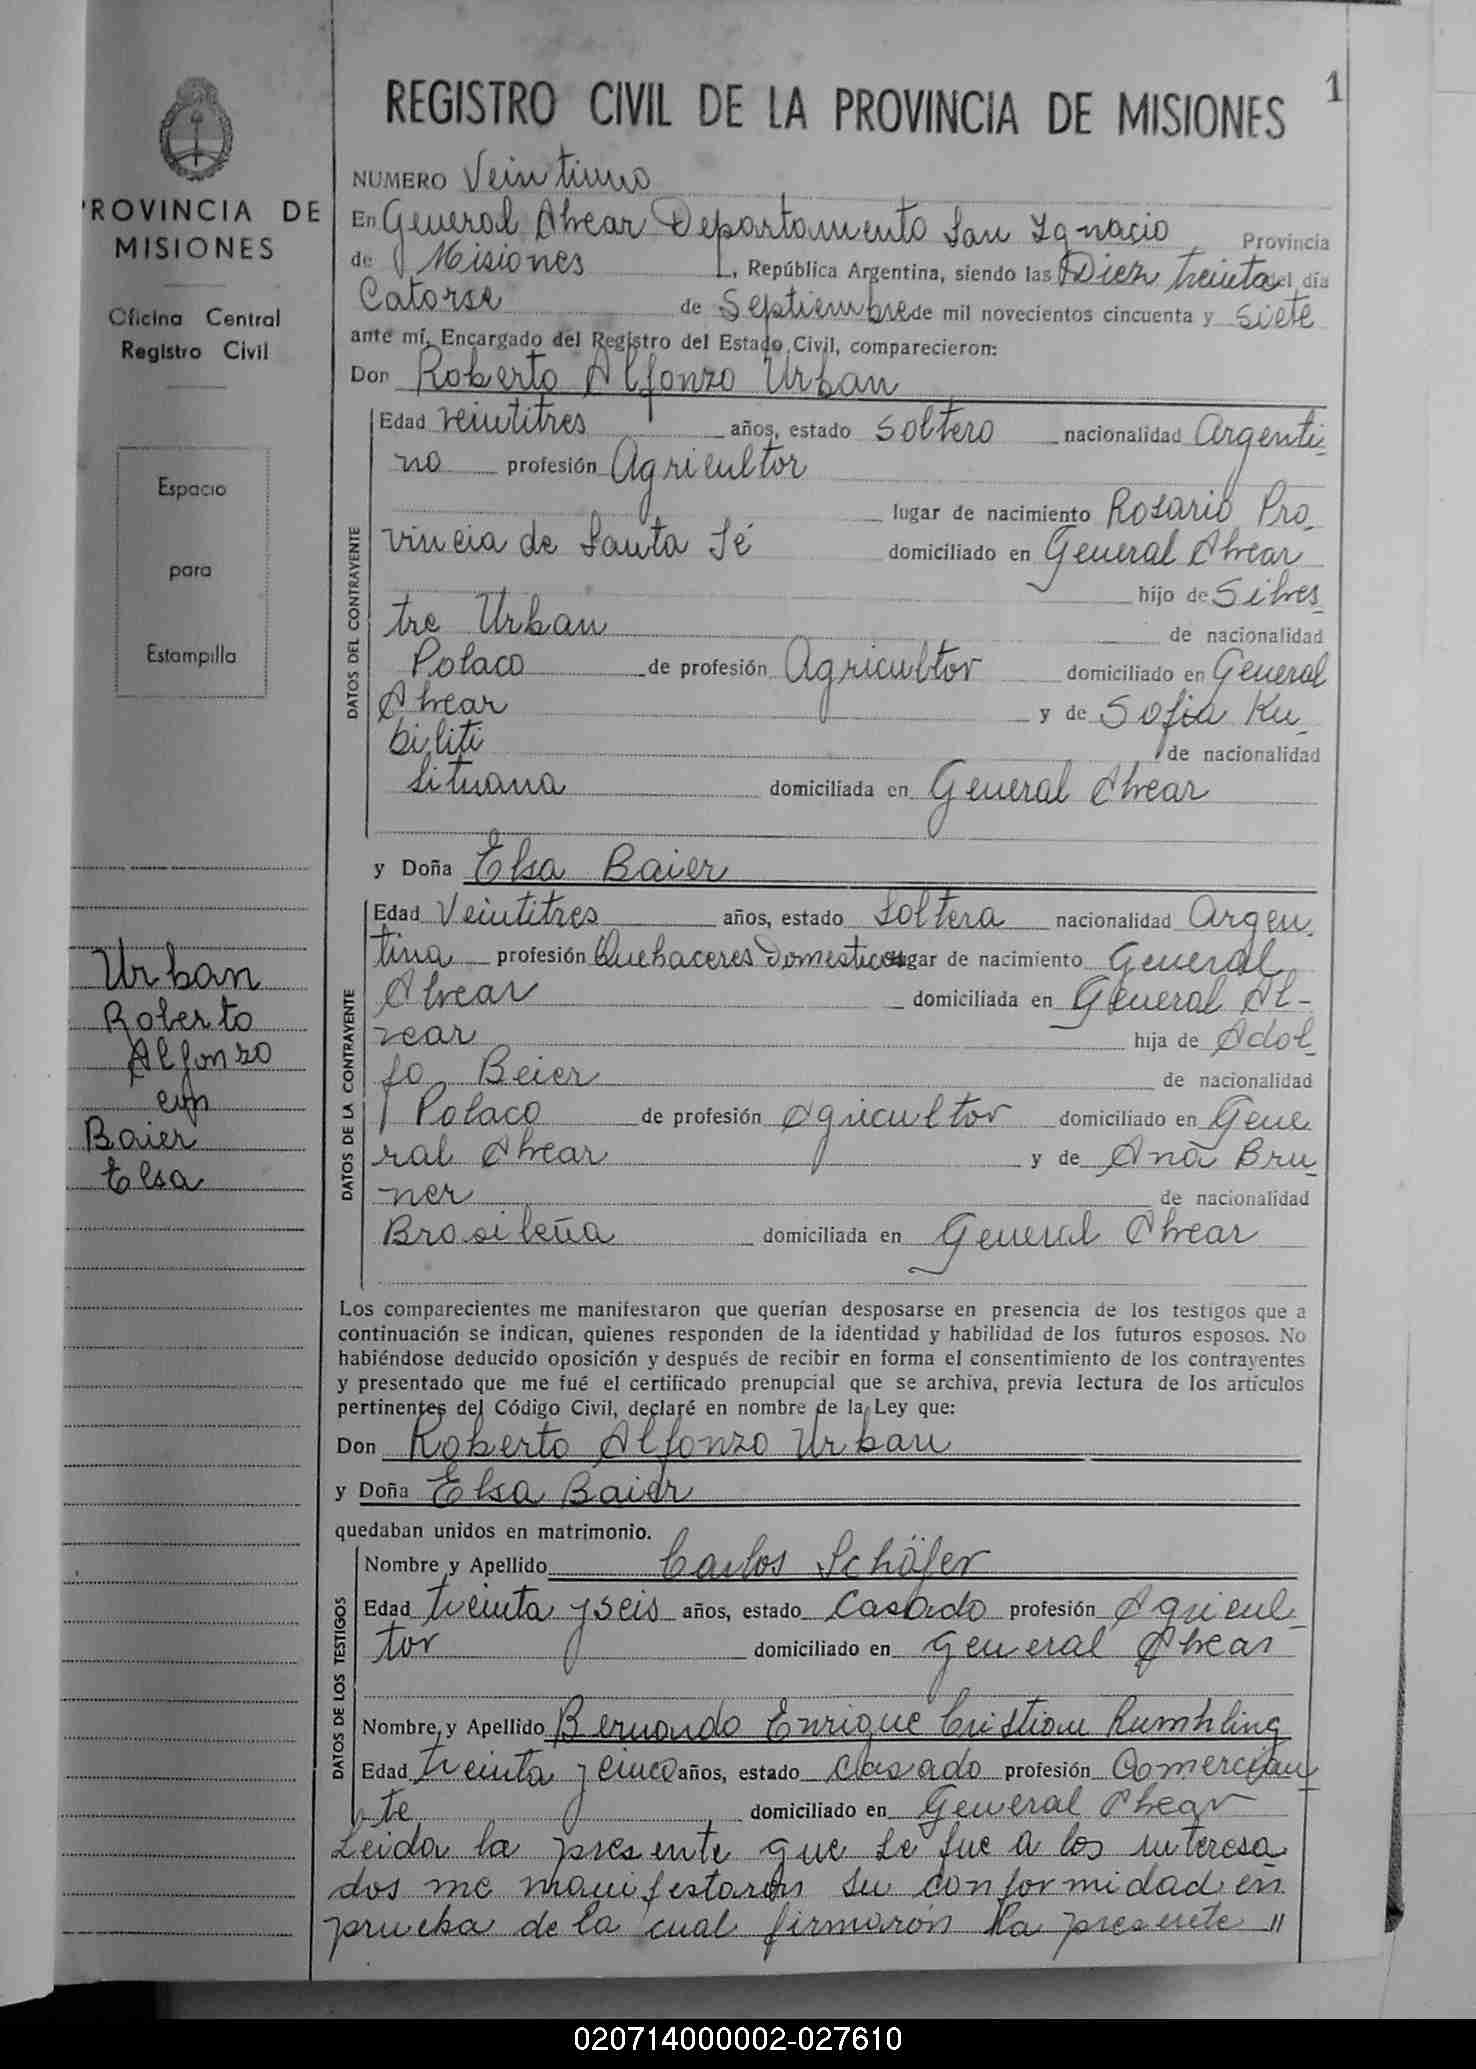 1
REGISTRO CIVIL DE LA PROVINCIA DE MISIONES
PROVINCIA DE
MISIONES
Oficina Central
Registro Civil
Espacio
para
Estampilla
Urban
Roberto
Alfonzo
con
Baier
Elsa
NUMERO Veintiuno
En General Alvear Departamento San Ignacio Provincia
de Misiones, República Argentina, siendo las Diez treinta del día
Catorse de Septiembre de mil novecientos cincuenta y siete
ante mí, Encargado del Registro del Estado Civil, comparecieron:
Don Roberto Alfonzo Urban
DATOS DEL CONTRAYENTE
Edad veintitres años, estado Soltero nacionalidad Argenti-
no profesión Agricultor
lugar de nacimiento Rosario Pro-
vincia de Santa Fé domiciliado en General Alvear
hijo de Silves-
tre Urban de nacionalidad
Polaco de profesión Agricultor domiciliado en General
Alvear y de Sofia Ku-
biliti de nacionalidad
Lituana domiciliada en General Alvear
y Doña Elsa Baier
DATOS DE LA CONTRAYENTE
Edad Veintitres años, estado Soltera nacionalidad Argen-
tina profesión Quehaceres Domesticos lugar de nacimiento General
Alvear domiciliada en General Al-
vear hija de Adol-
fo Beier de nacionalidad
Polaco de profesión Agricultor domiciliado en Gene
ral Alvear y de Ana Bru-
ner de nacionalidad
Brasileña domiciliada en General Alvear
Los comparecientes me manifestaron que querían desposarse en presencia de los testigos que a
continuación se indican, quienes responden de la identidad y habilidad de los futuros esposos. No
habiéndose deducido oposición y después de recibir en forma el consentimiento de los contrayentes
y presentado que me fué el certificado prenupcial que se archiva, previa lectura de los artículos
pertinentes del Código Civil, declaré en nombre de la Ley que:
Don Roberto Alfonzo Urban
y Doña Elsa Baier
quedaban unidos en matrimonio.
DATOS DE LOS TESTIGOS
Nombre y Apellido Carlos Schäfer
Edad treinta y seis años, estado Casado profesión Agricul-
tor domiciliado en General Alvear
Nombre y Apellido Bernardo Enrique Cristian
Edad treinta y cinco años, estado Casado profesión Comercian-
te domiciliado en General Alvear
Leida la presente que le fue a los interesa
dos me manifestaron su conformidad en
prueba de la cual firmarón la presente "
020714000002-027610